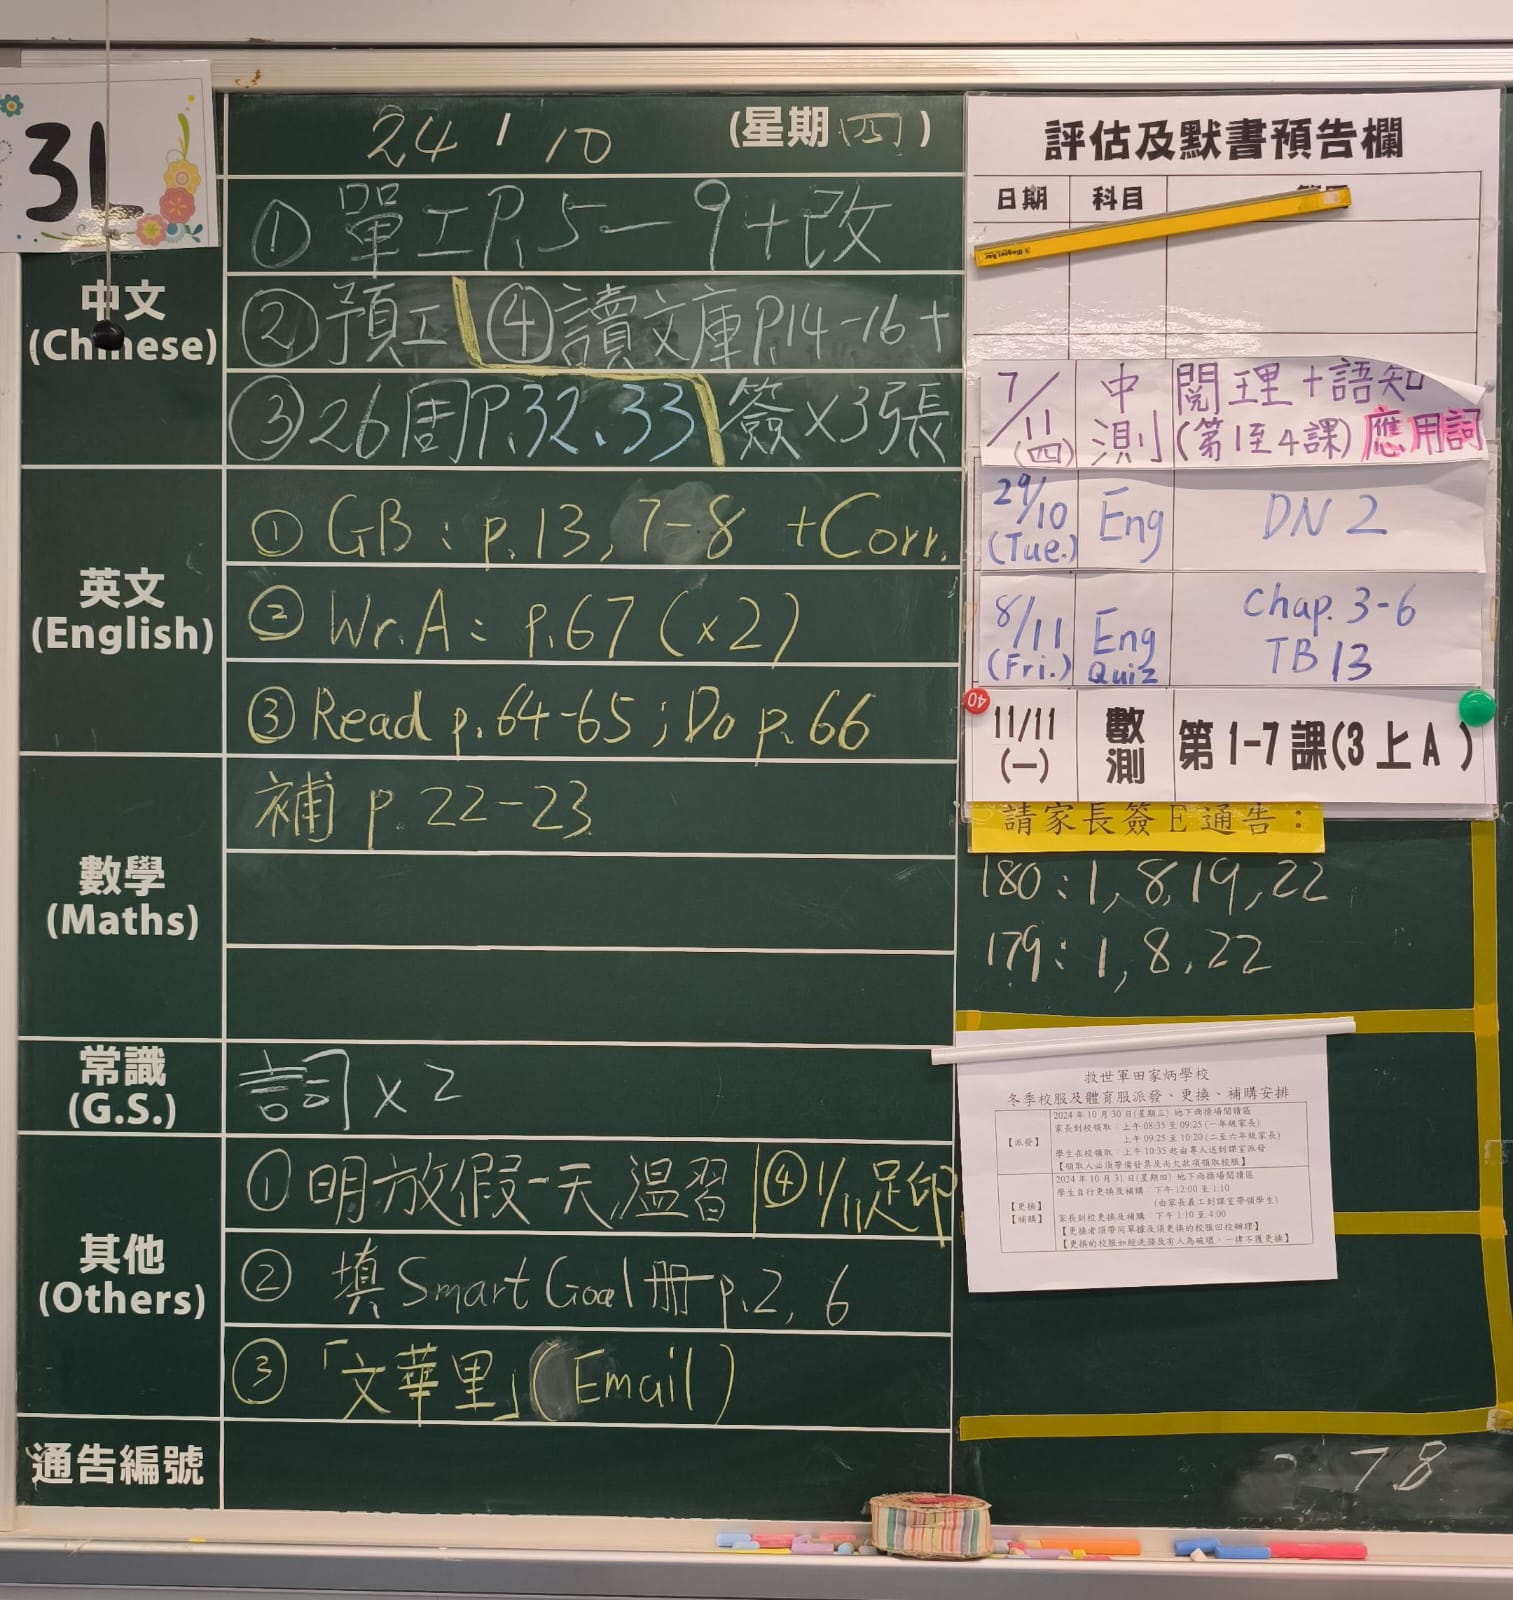 3L
24 / 10 (星期四)
中文
(Chinese)
① 單工P.5－9＋改
② 預工 ④ 讀文庫P.14-16＋
③ 26周P.32、33 簽×3張
英文
(English)
① GB : p.13, 7-8 +Corr.
② Wr.A : p.67 (×2)
③ Read p.64-65 ; Do p.66
數學
(Maths)
補 p.22-23
常識
(G.S.)
詞 × 2
其他
(Others)
① 明放假一天,溫習 ④ 1/11足印
② 填 Smart Goal 冊 p.2, 6
③ 「文華里」(Email)
通告編號
評估及默書預告欄
日期 科目
7/11 (四) 中測 閱理＋語知 (第1至4課) 應用詞
29/10 (Tue.) Eng DN 2
8/11 (Fri.) Eng Quiz Chap. 3-6 TB 13
40
11/11 (一) 數測 第1-7課(3上A)
請家長簽E通告：
180 : 1, 8, 19, 22
179 : 1, 8, 22
救世軍田家炳學校
冬季校服及體育服派發、更換、補購安排
【派發】
2024年10月30日(星期三) 地下雨操場閱讀區
家長到校領取：上午08:35至09:25(一年級家長)
上午09:25至10:20(二至六年級家長)
學生在校領取：上午10:35起由專人送到課室派發
【領取人必須帶備發票及尚欠款項領取校服】
【更換】
【補購】
2024年10月31日(星期四) 地下雨操場閱讀區
學生自行更換及補購：下午12:00至1:10
(由家長義工到課室帶領學生)
家長到校更換及補購：下午1:10至4:00
【更換者須帶同單據及須更換的校服回校辦理】
【更換的校服如經洗滌及有人為破壞，一律不獲更換】
78